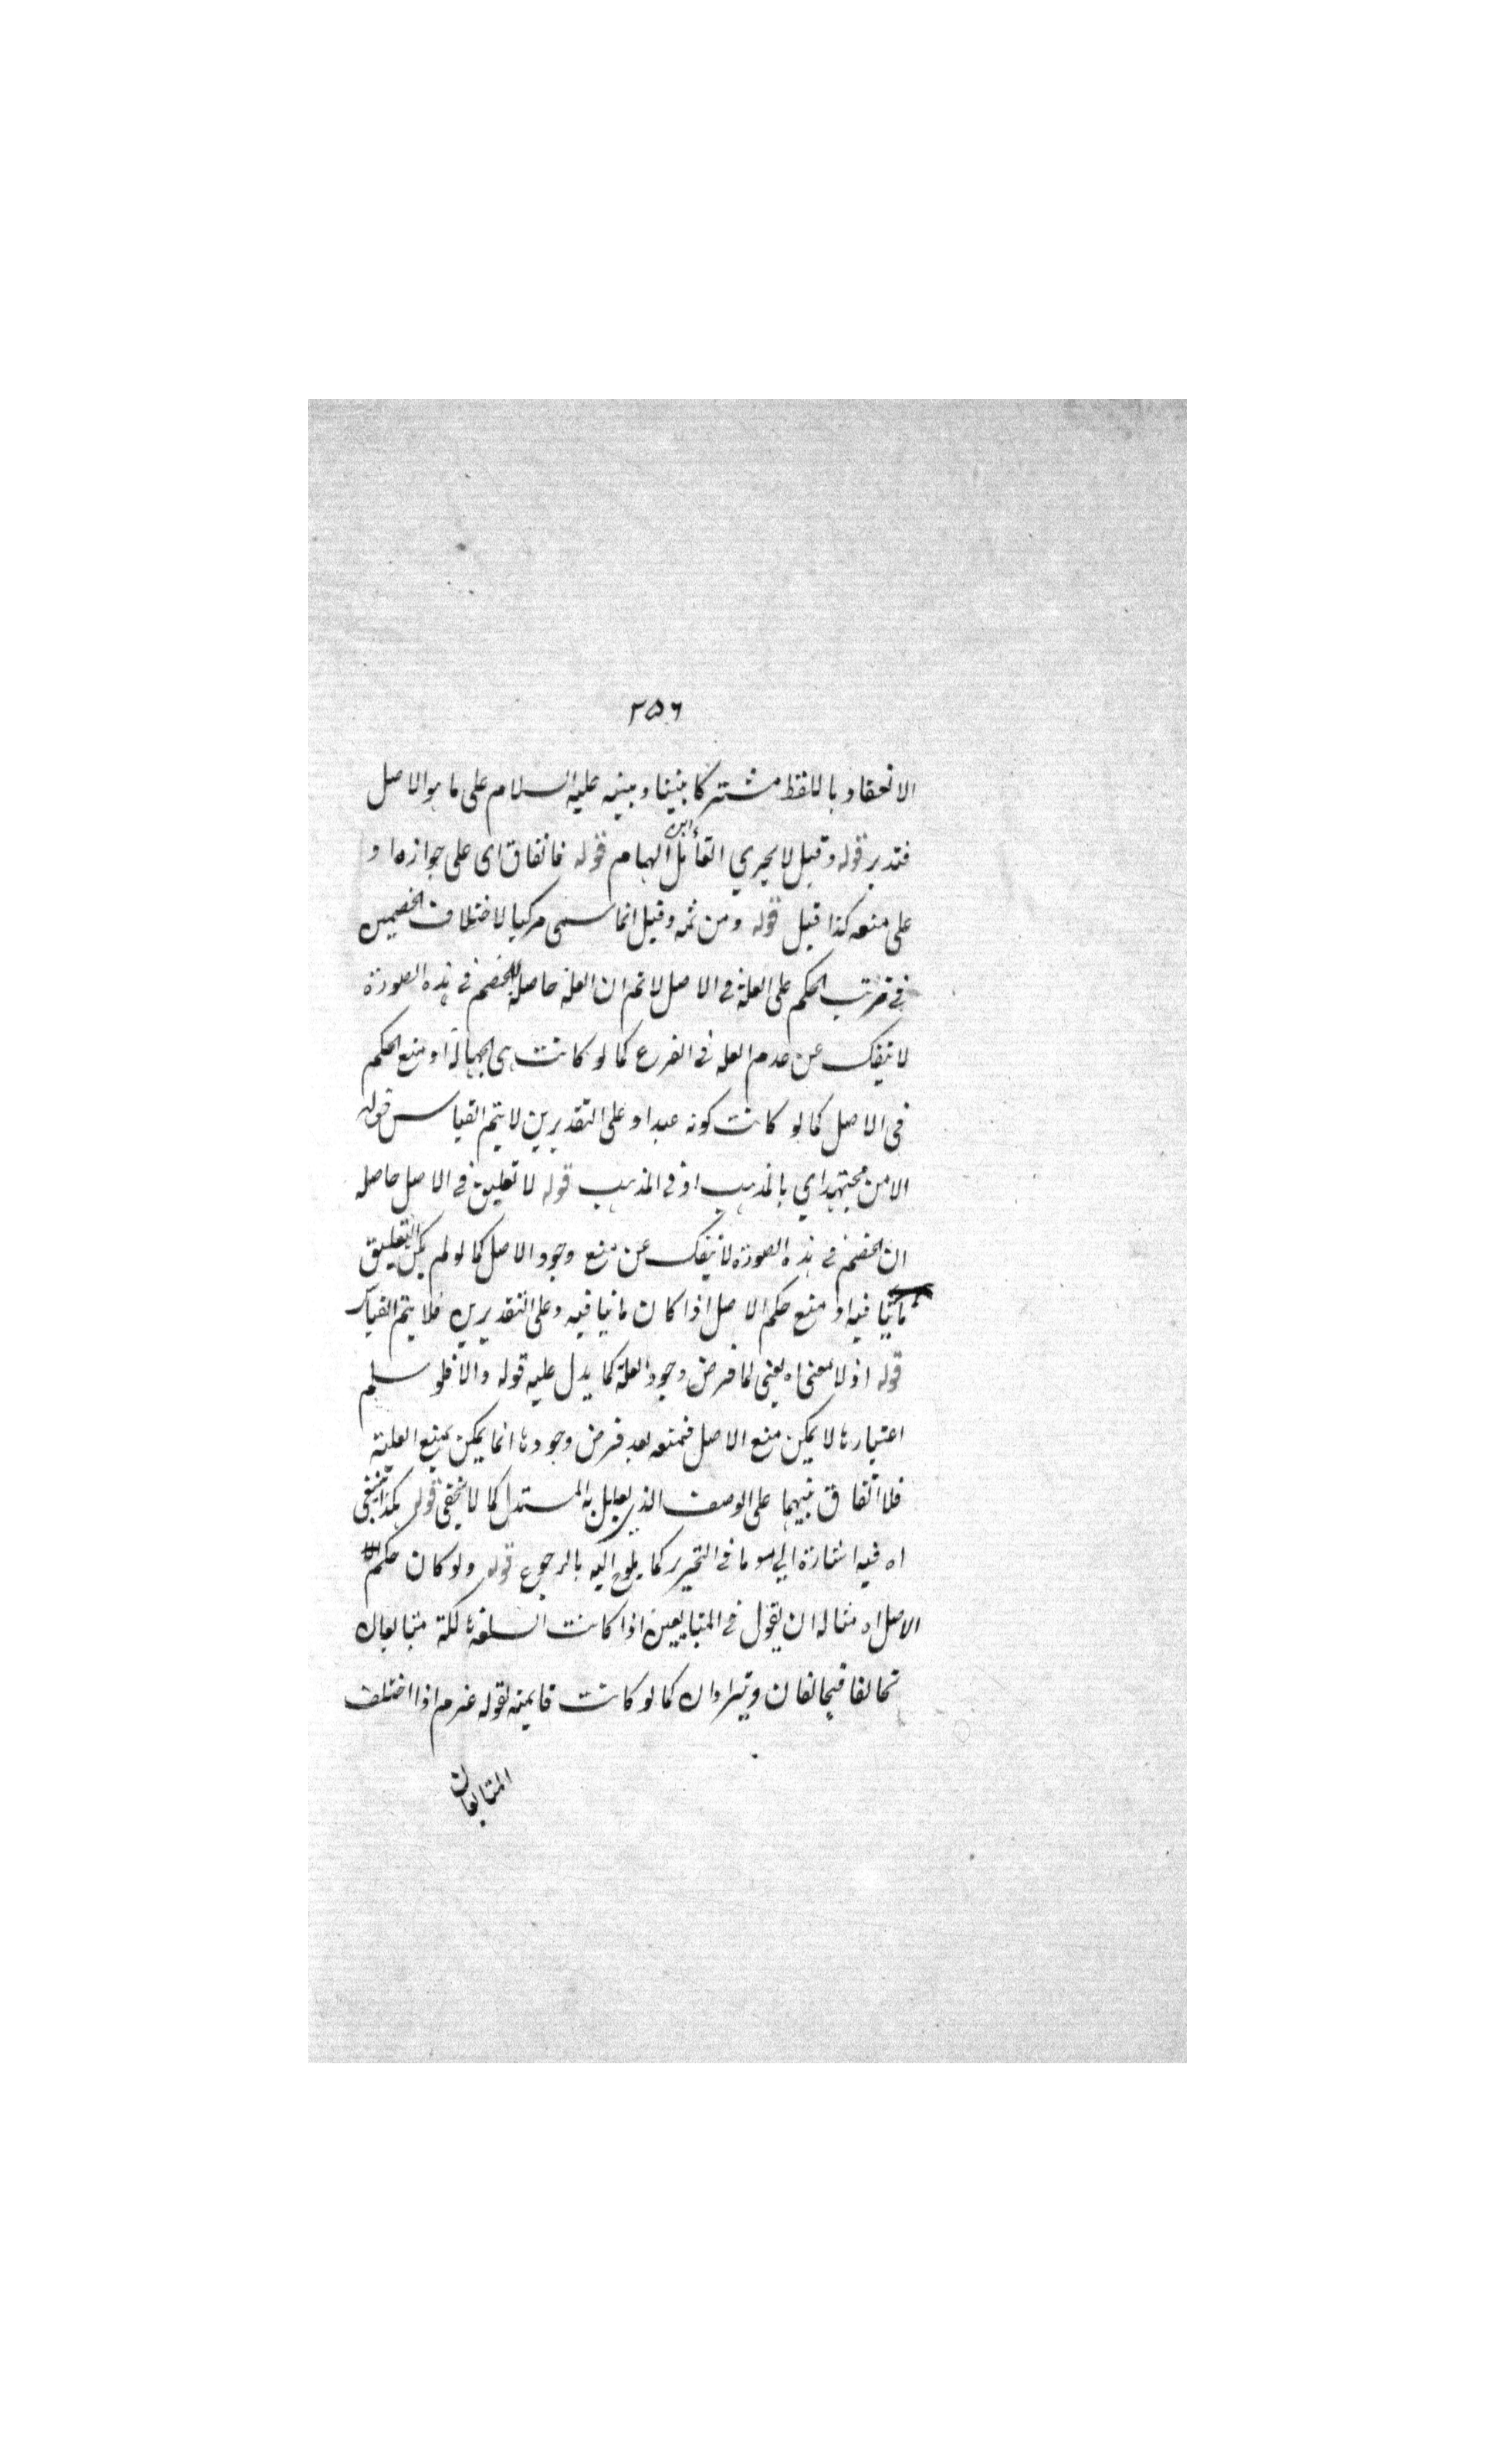 ٣٥٦
الانعقاد باللفظ مشتركا بيننا وبينه عليه السلام على ما هو الاصل
فتدبر قوله وقيل لا يجري القائل ابن الهمام قوله فاتفاق اى على جوازه او
على منعه كذا قيل قوله ومن ثمه وقيل انما سمى مركبا لاختلاف الخصمين
فى ترتب الحكم على العلة فى الاصل لا ثم ان العلة حاصله للخصم فى هذه الصورة
لا ينفك عن عدم العله فى الفرع كما لو كانت هى الجهالة او منع الحكم
فى الاصل كما لو كانت كونه عبدا وعلى التقديرين لا يتم القياس قوله
الا من مجتهد اي بالمذهب او فى المذهب قوله لا تعليق فى الاصل حاصله
ان الخصم فى هذه الصورة لا ينفك عن منع وجود الاصل كما لو لم يكن التعليق
ثابتا فيه او منع حكم الاصل اذا كان ثابتا فيه وعلى التقديرين فلا يتم القياس
قوله اذ لا معنى اه يعنى لما فرض وجود العلة كما يدل عليه قوله والا فلو سلم
اعتبارها لا يمكن منع الاصل فمنعه بعد فرض وجودها انما يمكن بمنع العلية
فلا اتفاق بينهما على الوصف الذي يعلل به المستدل كما لا يخفى قوله هكذا ينبغى
اه فيه اشارة الي سوء ما فى التحرير كما يلوح اليه بالرجوع قوله ولو كان حكم
الاصل اه مثاله ان يقول فى المتبايعين اذا كانت السلعة هالكة متبايعان
تخالفا فيتحالفان ويترادان كما لو كانت قايمة لقوله عم اذا اختلف
المتبايعان